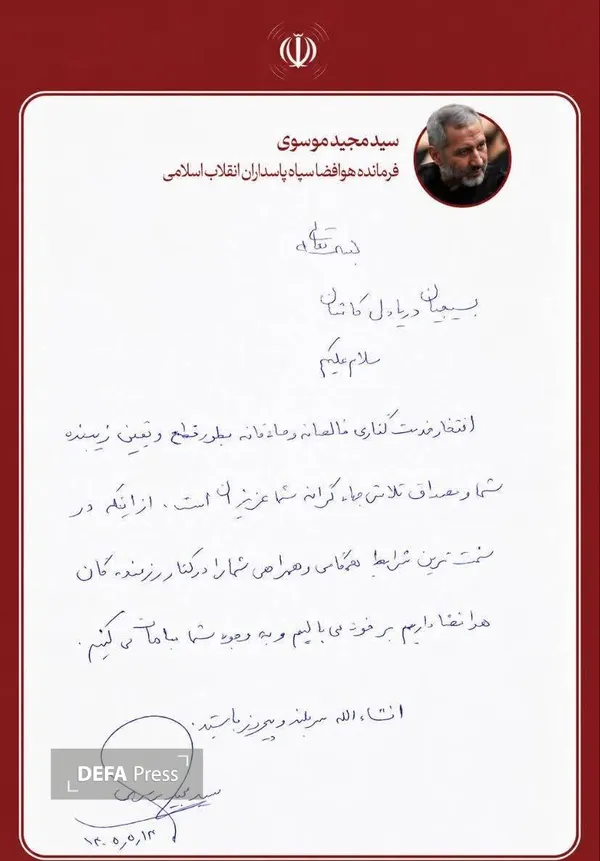 سید مجید موسوی
فرمانده هوافضا سپاه پاسداران انقلاب اسلامی
بسمه تعالی
بسیجیان دریا دل کاشان
سلام علیکم
افتخار خدمت گذاری خالصانه و صادقانه بطور قطع و یقین زیبنده
شما و مصداق تلاش جهادگرانه شما عزیزان است. از اینکه در
سخت ترین شرایط همگامی و همراهی شما را در کنار رزمندگان
هوافضا داریم بر خود می بالیم و به وجود شما مباهات می کنیم.
انشاءالله سربلند و پیروز باشید.
DEFA Press
سید مجید موسوی